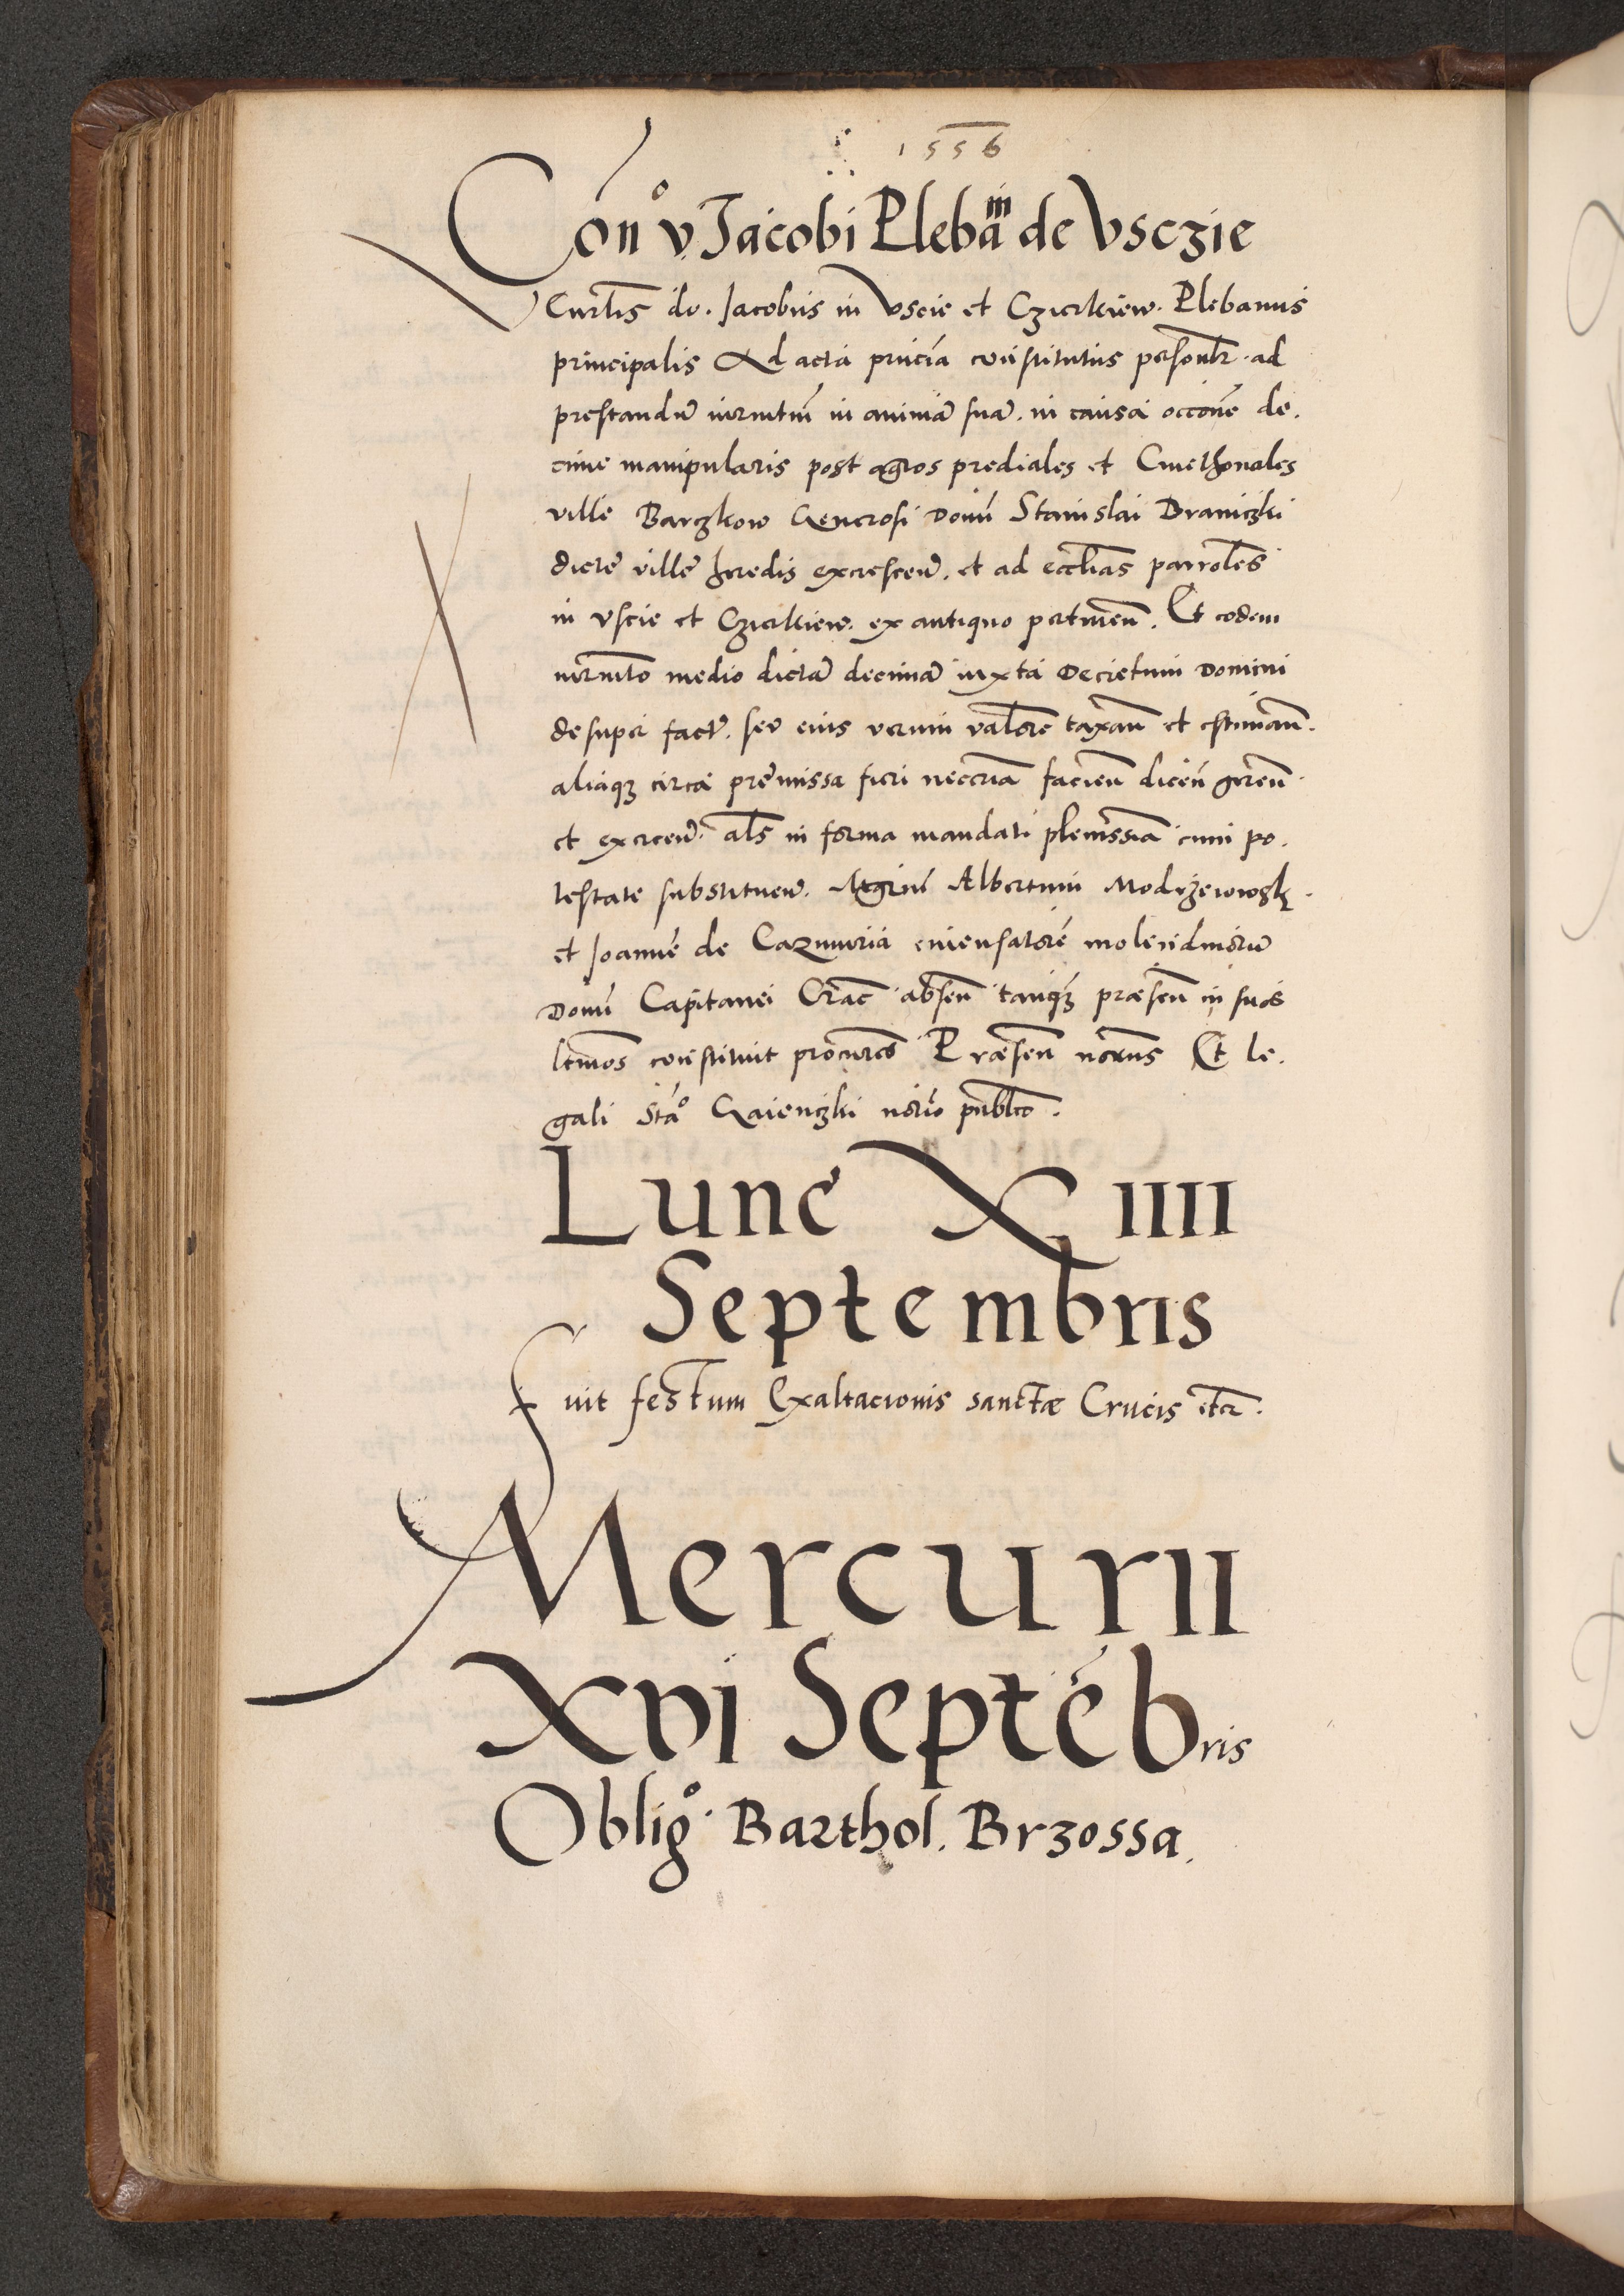 1556
Con° v. Jacobi Plebani de Vsczie
Venrlis do. Jacobus in Vscie et Czirkiew. Plebanus
principalis Ad acta pnicia constitutus personlr. ad
prestandu iurmtm in anima sua. in causa occone de.
cime manipularis post agros prediales et Cmethonales
ville Barczkow Generosi Domi Stanislai Braniczki
dicte ville heredis excrescen. et ad ecclias parroles
in vscie et Czirkiew. ex antiquo pertinen. Et eodem
iurmto medio dicta decima iuxta Decretum Domini
desuper fact. seu eius verum valore taxan et estiman.
aliaq circa premissa fieri neccria facien dicen geren.
et exercen. als in forma mandati plenissia cum po.
testate substituen. Mgrm Albertum Modrzewwsk.
et Joanne de Cazimiria mensatore molendinoru
Domi Capitanei Crac absen tanq præsen in suos
ltimos constituit procures Præsen Et le.
gali Sta° Gaienczki norio publco.
Lune XIIII
Septembris
Fuit festum Exaltacionis sanctæ Crucis etcr.
Mercurii
XVI Septebris
Oblig° Barthol. Brzossa.